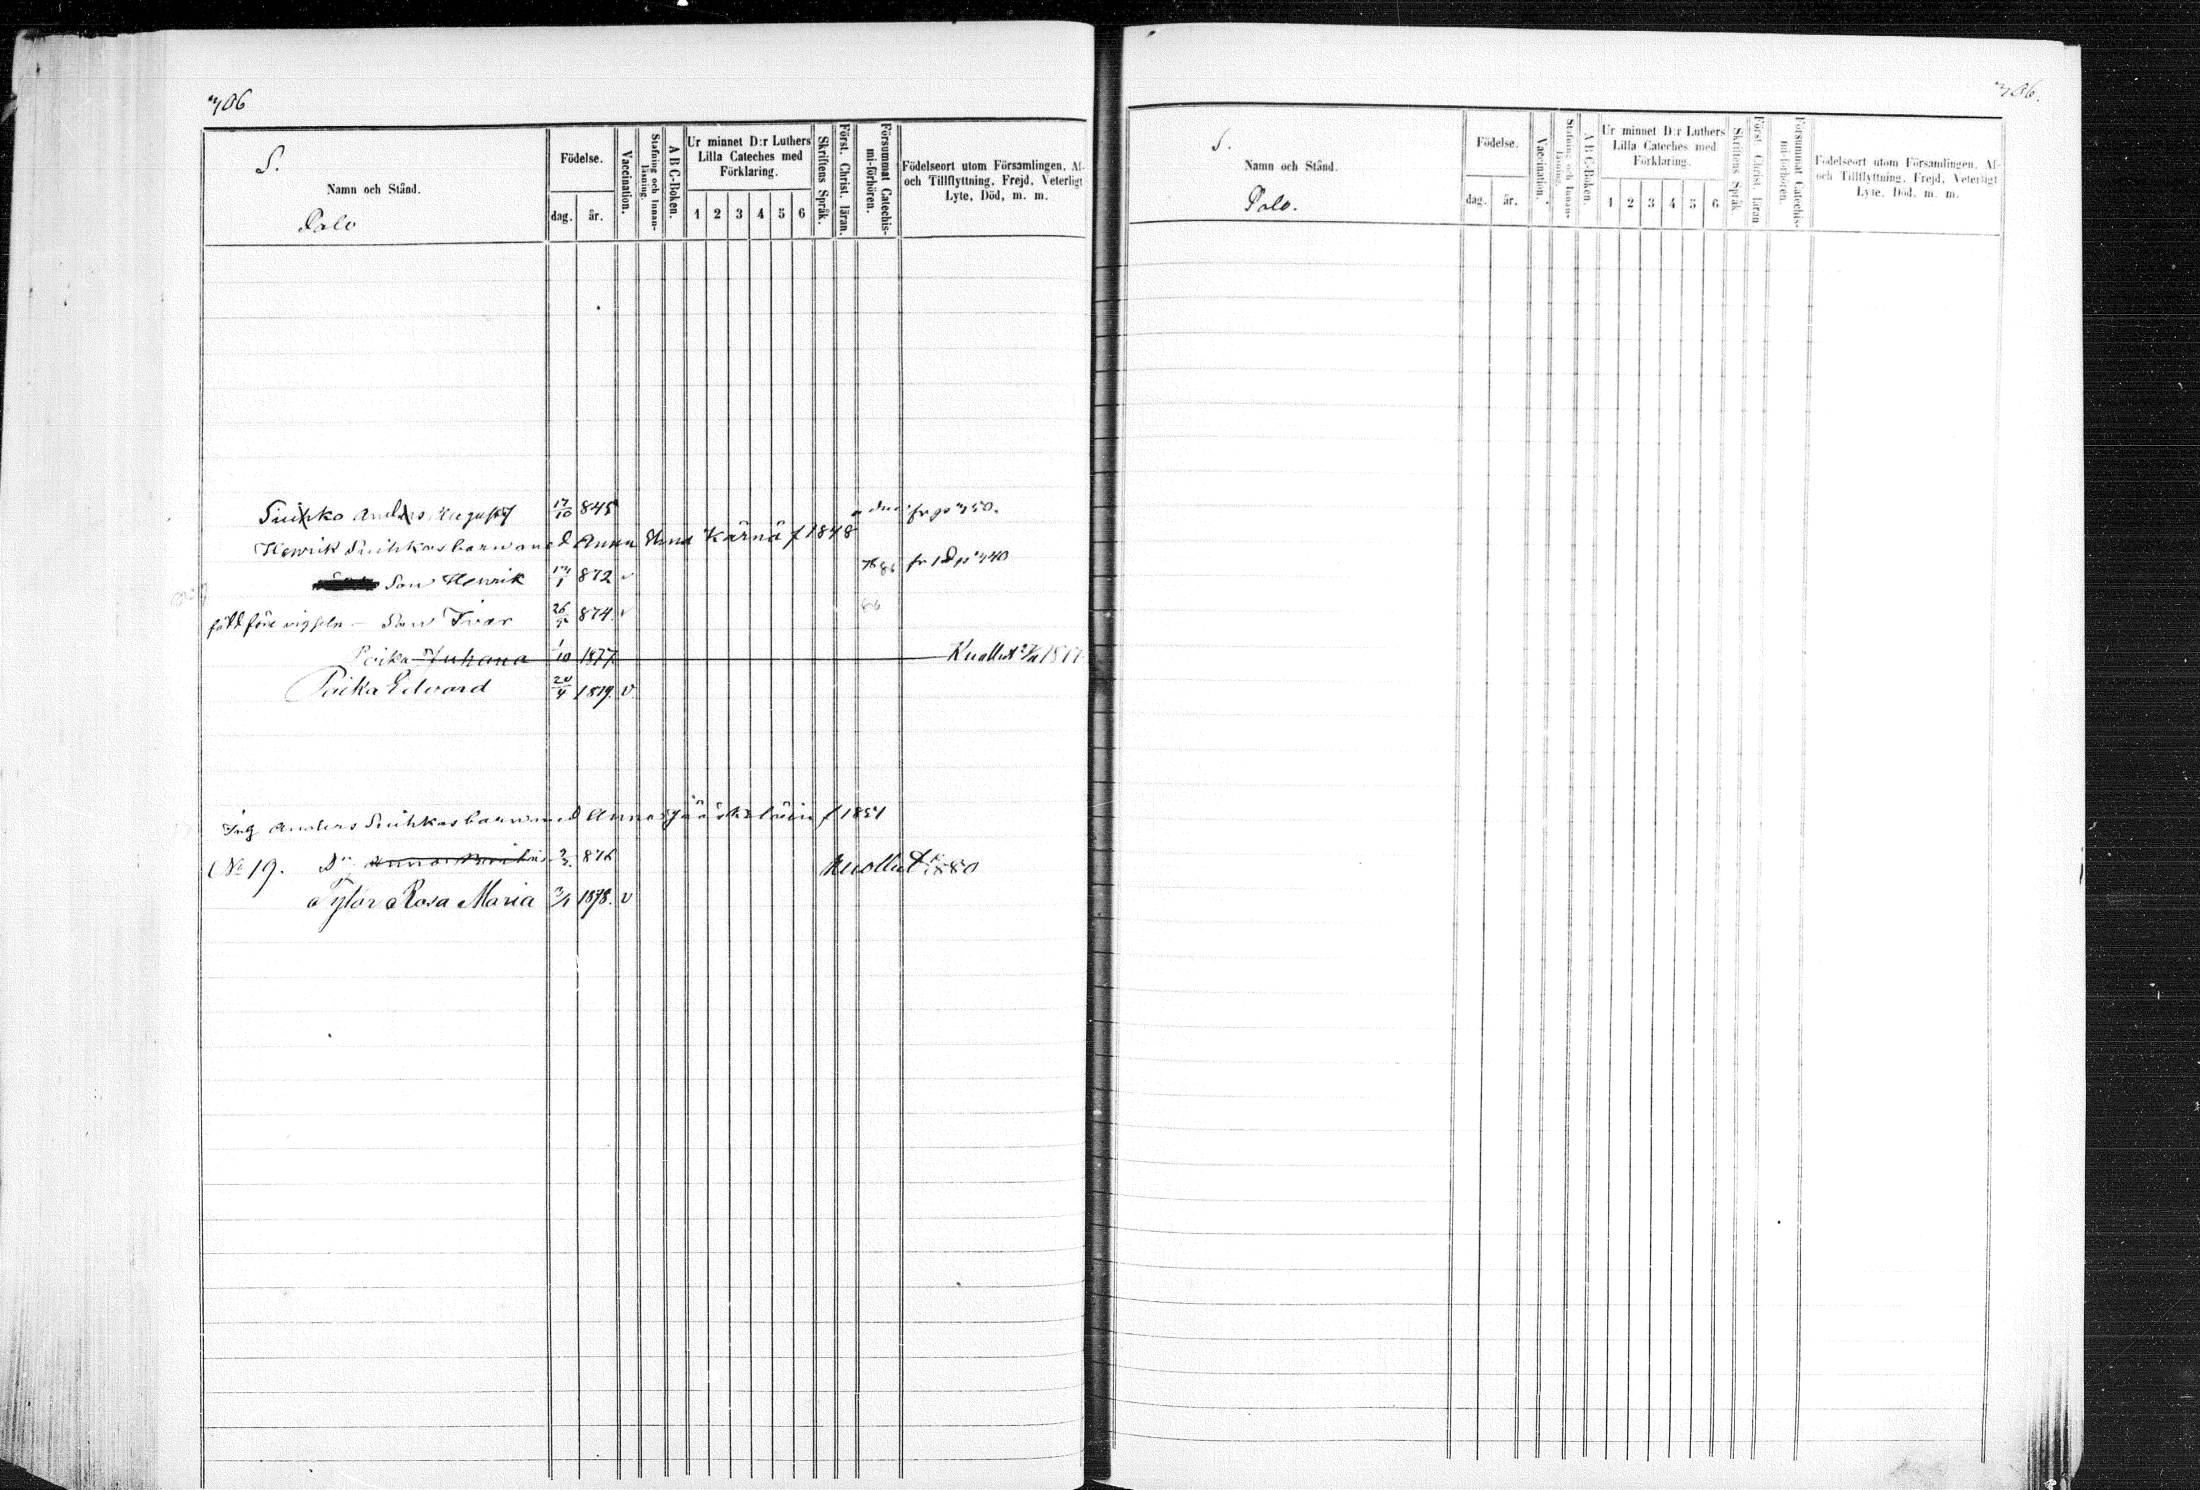 306
S.
Namn och Stånd.
Palo
Födelse.
dag.
år.
Vaccination.
Stafning och Innanläsning.
A B C-Boken.
Ur minnet D:r Luthers
Lilla Cateches med
Förklaring.
1 2 3 4 5 6
Skriftens Språk.
Först. Christ. läran.
Försummat Catechismi-förhören.
Födelseort utom Församlingen, Af-
och Tillflyttning, Frejd, Veterligt
Lyte, Död, m. m.
Suihko Anders August 17/10 845 fr p 350.
Henrik Suihkos barn med Anna Kärnä f 1848
Son Henrik 872 v fr p 340
född före vigseln – Son Ivar 26 874. v
Poika Juhana 1/10 1877 Kuollut 1877
Poika Edvard 20/4 1879. v
Ing Anders Suihkos barn med Anna Jääskeläin f 1851
No 19. Dr Anna 876 Kuollut 1880
a Tytär Rosa Maria 3/1 1878. v
306.
S.
Namn och Stånd.
Palo.
Födelse.
dag. år.
Vaccination.
Stafning och Innanläsning.
A B C-Boken.
Ur minnet D:r Luthers
Lilla Cateches med
Förklaring.
1 2 3 4 5 6
Skriftens Språk.
Först. Christ. läran
Försummat Catechismi-förhören.
Födelseort utom Församlingen, Af-
och Tillflyttning, Frejd, Veterligt
Lyte, Död, m. m.